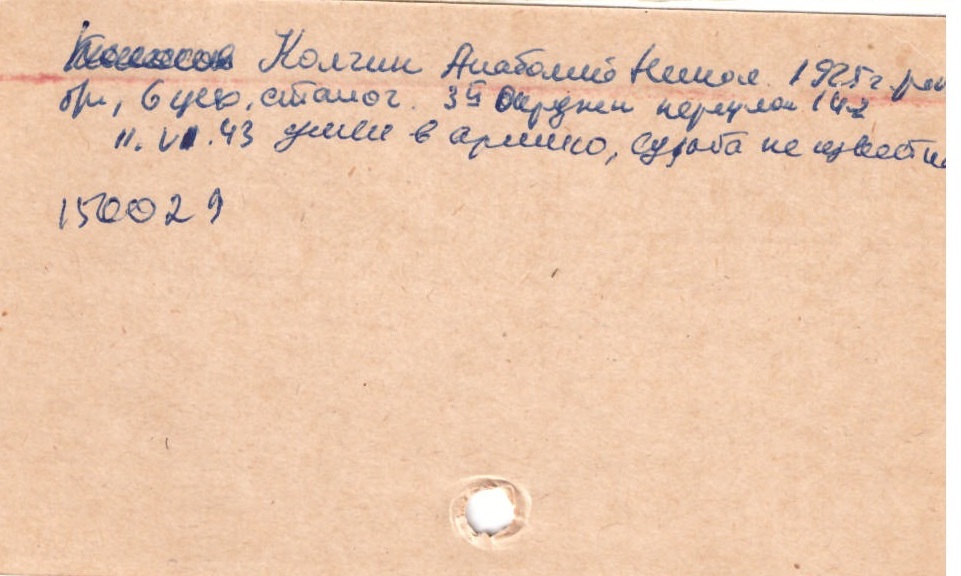 Колчин Анатолий Никол. 1925г. рож
6 цех, сталог. 3й переулок
11. VII. 43 ушел в армию, судьба не известна
150029